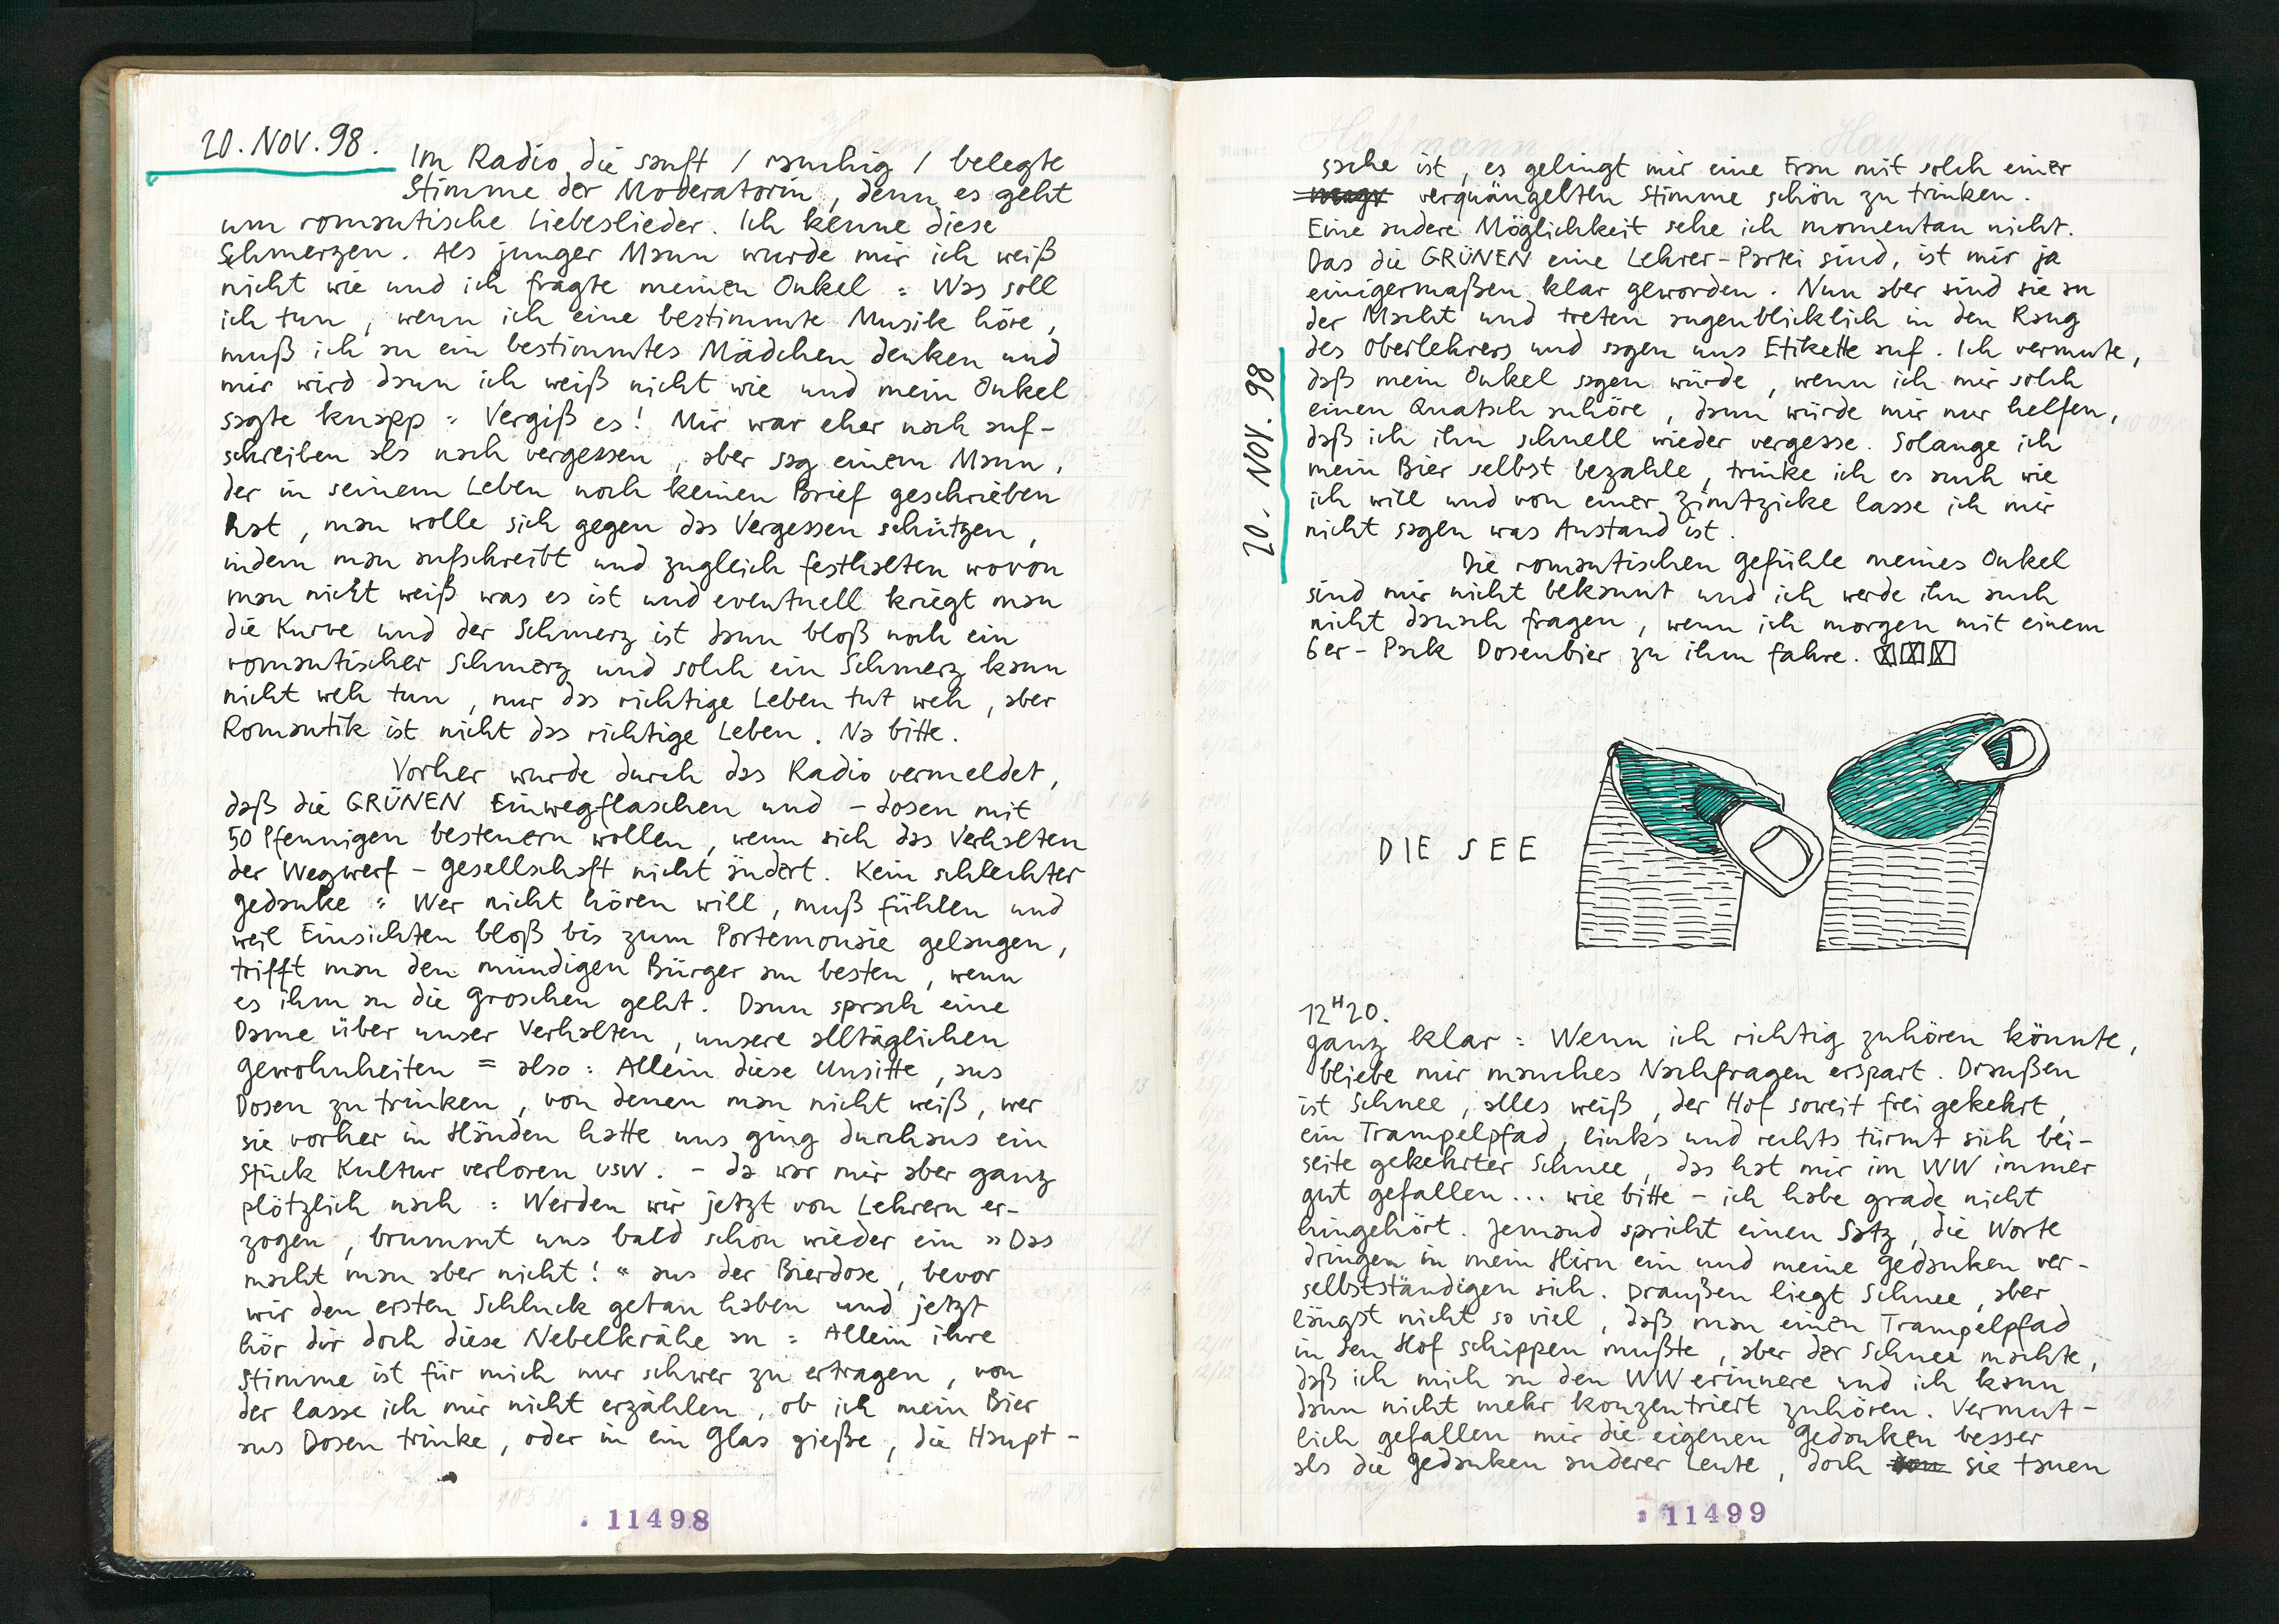 20. NOV. 98.
Im Radio die sanft / rauchig / belegte
Stimme der Moderatorin, denn es geht
um romantische Liebeslieder. Ich kenne diese
Schmerzen. Als junger Mann wurde mir ich weiß
nicht wie und ich fragte meinen Onkel : Was soll
ich tun, wenn ich eine bestimmte Musik höre,
muß ich an ein bestimmtes Mädchen denken und
mir wird dann ich weiß nicht wie und mein Onkel
sagte knapp : Vergiß es! Mir war eher nach auf-
schreiben als nach vergessen, aber sag einem Mann,
der in seinem Leben noch keinen Brief geschrieben
hat, man wolle sich gegen das Vergessen schützen,
indem man aufschreibt und zugleich festhalten wovon
man nicht weiß was es ist und eventuell kriegt man
die Kurve und der Schmerz ist dann bloß noch ein
romantischer Schmerz und solch ein Schmerz kann
nicht weh tun, nur das richtige Leben tut weh, aber
Romantik ist nicht das richtige Leben. Na bitte.
Vorher wurde durch das Radio vermeldet,
daß die GRÜNEN Einwegflaschen und -dosen mit
50 Pfennigen besteuern wollen, wenn sich das Verhalten
der Wegwerf-Gesellschaft nicht ändert. Kein schlechter
Gedanke : Wer nicht hören will, muß fühlen und
weil Einsichten bloß bis zum Portemonaie gelangen,
trifft man den mündigen Bürger am besten, wenn
es ihm an die Groschen geht. Dann sprach eine
Dame über unser Verhalten, unsere alltäglichen
Gewohnheiten = also : Allein diese Unsitte, aus
Dosen zu trinken, von denen man nicht weiß, wer
sie vorher in Händen hatte uns ging durchaus ein
Stück Kultur verloren usw. - da war mir aber ganz
plötzlich nach : Werden wir jetzt von Lehrern er-
zogen, brummt uns bald schon wieder ein »Das
macht man aber nicht!« aus der Bierdose, bevor
wir den ersten Schluck getan haben und jetzt
hör dir doch diese Nebelkrähe an : Allein ihre
Stimme ist für mich nur schwer zu ertragen, von
der lasse ich mir nicht erzählen, ob ich mein Bier
aus Dosen trinke, oder in ein Glas gieße, die Haupt-
11498
20. NOV. 98
sache ist, es gelingt mir eine Frau mit solch einer
verquängelten Stimme schön zu trinken.
Eine andere Möglichkeit sehe ich momentan nicht.
Das die GRÜNEN eine Lehrer-Partei sind, ist mir ja
einigermaßen klar geworden. Nun aber sind sie an
der Macht und treten augenblicklich in den Rang
des Oberlehrers und sagen uns Etikette auf. Ich vermute,
daß mein Onkel sagen würde, wenn ich mir solch
einen Quatsch anhöre, dann würde mir nur helfen,
daß ich ihn schnell wieder vergesse. Solange ich
mein Bier selbst bezahle, trinke ich es auch wie
ich will und von einer Zimtzicke lasse ich mir
nicht sagen was Anstand ist.
Die romantischen Gefühle meines Onkel
sind mir nicht bekannt und ich werde ihn auch
nicht danach fragen, wenn ich morgen mit einem
6er-Pack Dosenbier zu ihm fahre.
DIE SEE
12H20.
Ganz klar : Wenn ich richtig zuhören könnte,
bliebe mir manches Nachfragen erspart. Draußen
ist Schnee, alles weiß, der Hof soweit frei gekehrt,
ein Trampelpfad, links und rechts türmt sich bei-
seite gekehrter Schnee, das hat mir im WW immer
gut gefallen... wie bitte - ich habe grade nicht
hingehört. Jemand spricht einen Satz, die Worte
dringen in mein Hirn ein und meine Gedanken ver-
selbstständigen sich. Draußen liegt Schnee, aber
längst nicht so viel, daß man einen Trampelpfad
in den Hof schippen mußte, aber der Schnee machte,
daß ich mich an den WW erinnere und ich kann
dann nicht mehr konzentriert zuhören. Vermut-
lich gefallen mir die eigenen Gedanken besser
als die Gedanken anderer Leute, doch sie tauen
11499